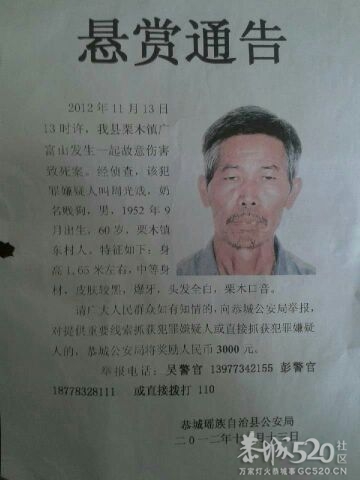 悬赏通告
2012年11月13日
13时许，我县栗木镇广
富山发生一起故意伤害
致死案。经侦查，该犯
罪嫌疑人叫周光
名贱狗，男，1952年9
月出生，60岁，栗木镇
东村人。特征如下：身
高1.65米左右，中等身
材，皮肤较黑，爆牙，头发全白，栗木口音。
请广大人民群众如有知情的，向恭城公安局举报，
对提供重要线索抓获犯罪嫌疑人或直接抓获犯罪嫌疑
人的，恭城公安局将奖励人民币 3000 元。
举报电话：吴警官 13977342155 彭警官
18778328111 或直接拨打 110
恭城瑶族自治县公安局
二〇一二年十一月十三日
恭城520社区
万家灯火恭城事 GC520.CN